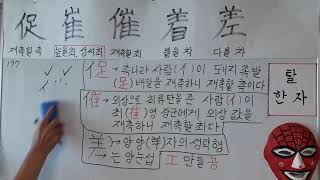 促 崔 催 着 差
재촉할 촉 높을최, 성씨최 재촉할최 붙을 착 다를 차
197
促 - 촉나라 사람(亻)이 돼지 족발
(足)배달을 재촉하니 재촉할 촉이다
催 = 외상으로 최류탄을 쏜 사람(亻)이
최(崔)영 장군에게 외상 값을
재촉하니 재촉할 최다
羊 → 양양(羊)자의 생략형
는 양눈섭 工 만들 공
탈
한자